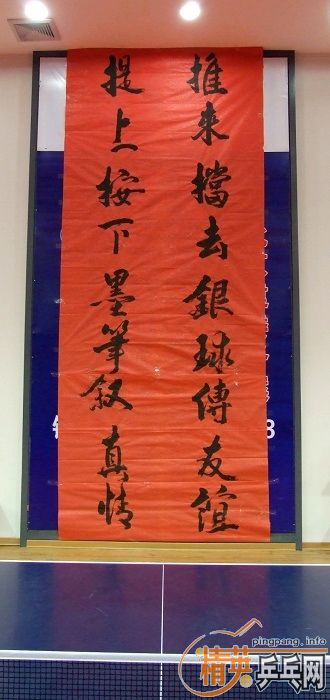 推来擋去銀球傳友誼
提上按下墨筆叙真情
pingpang.info
精英乒乓网